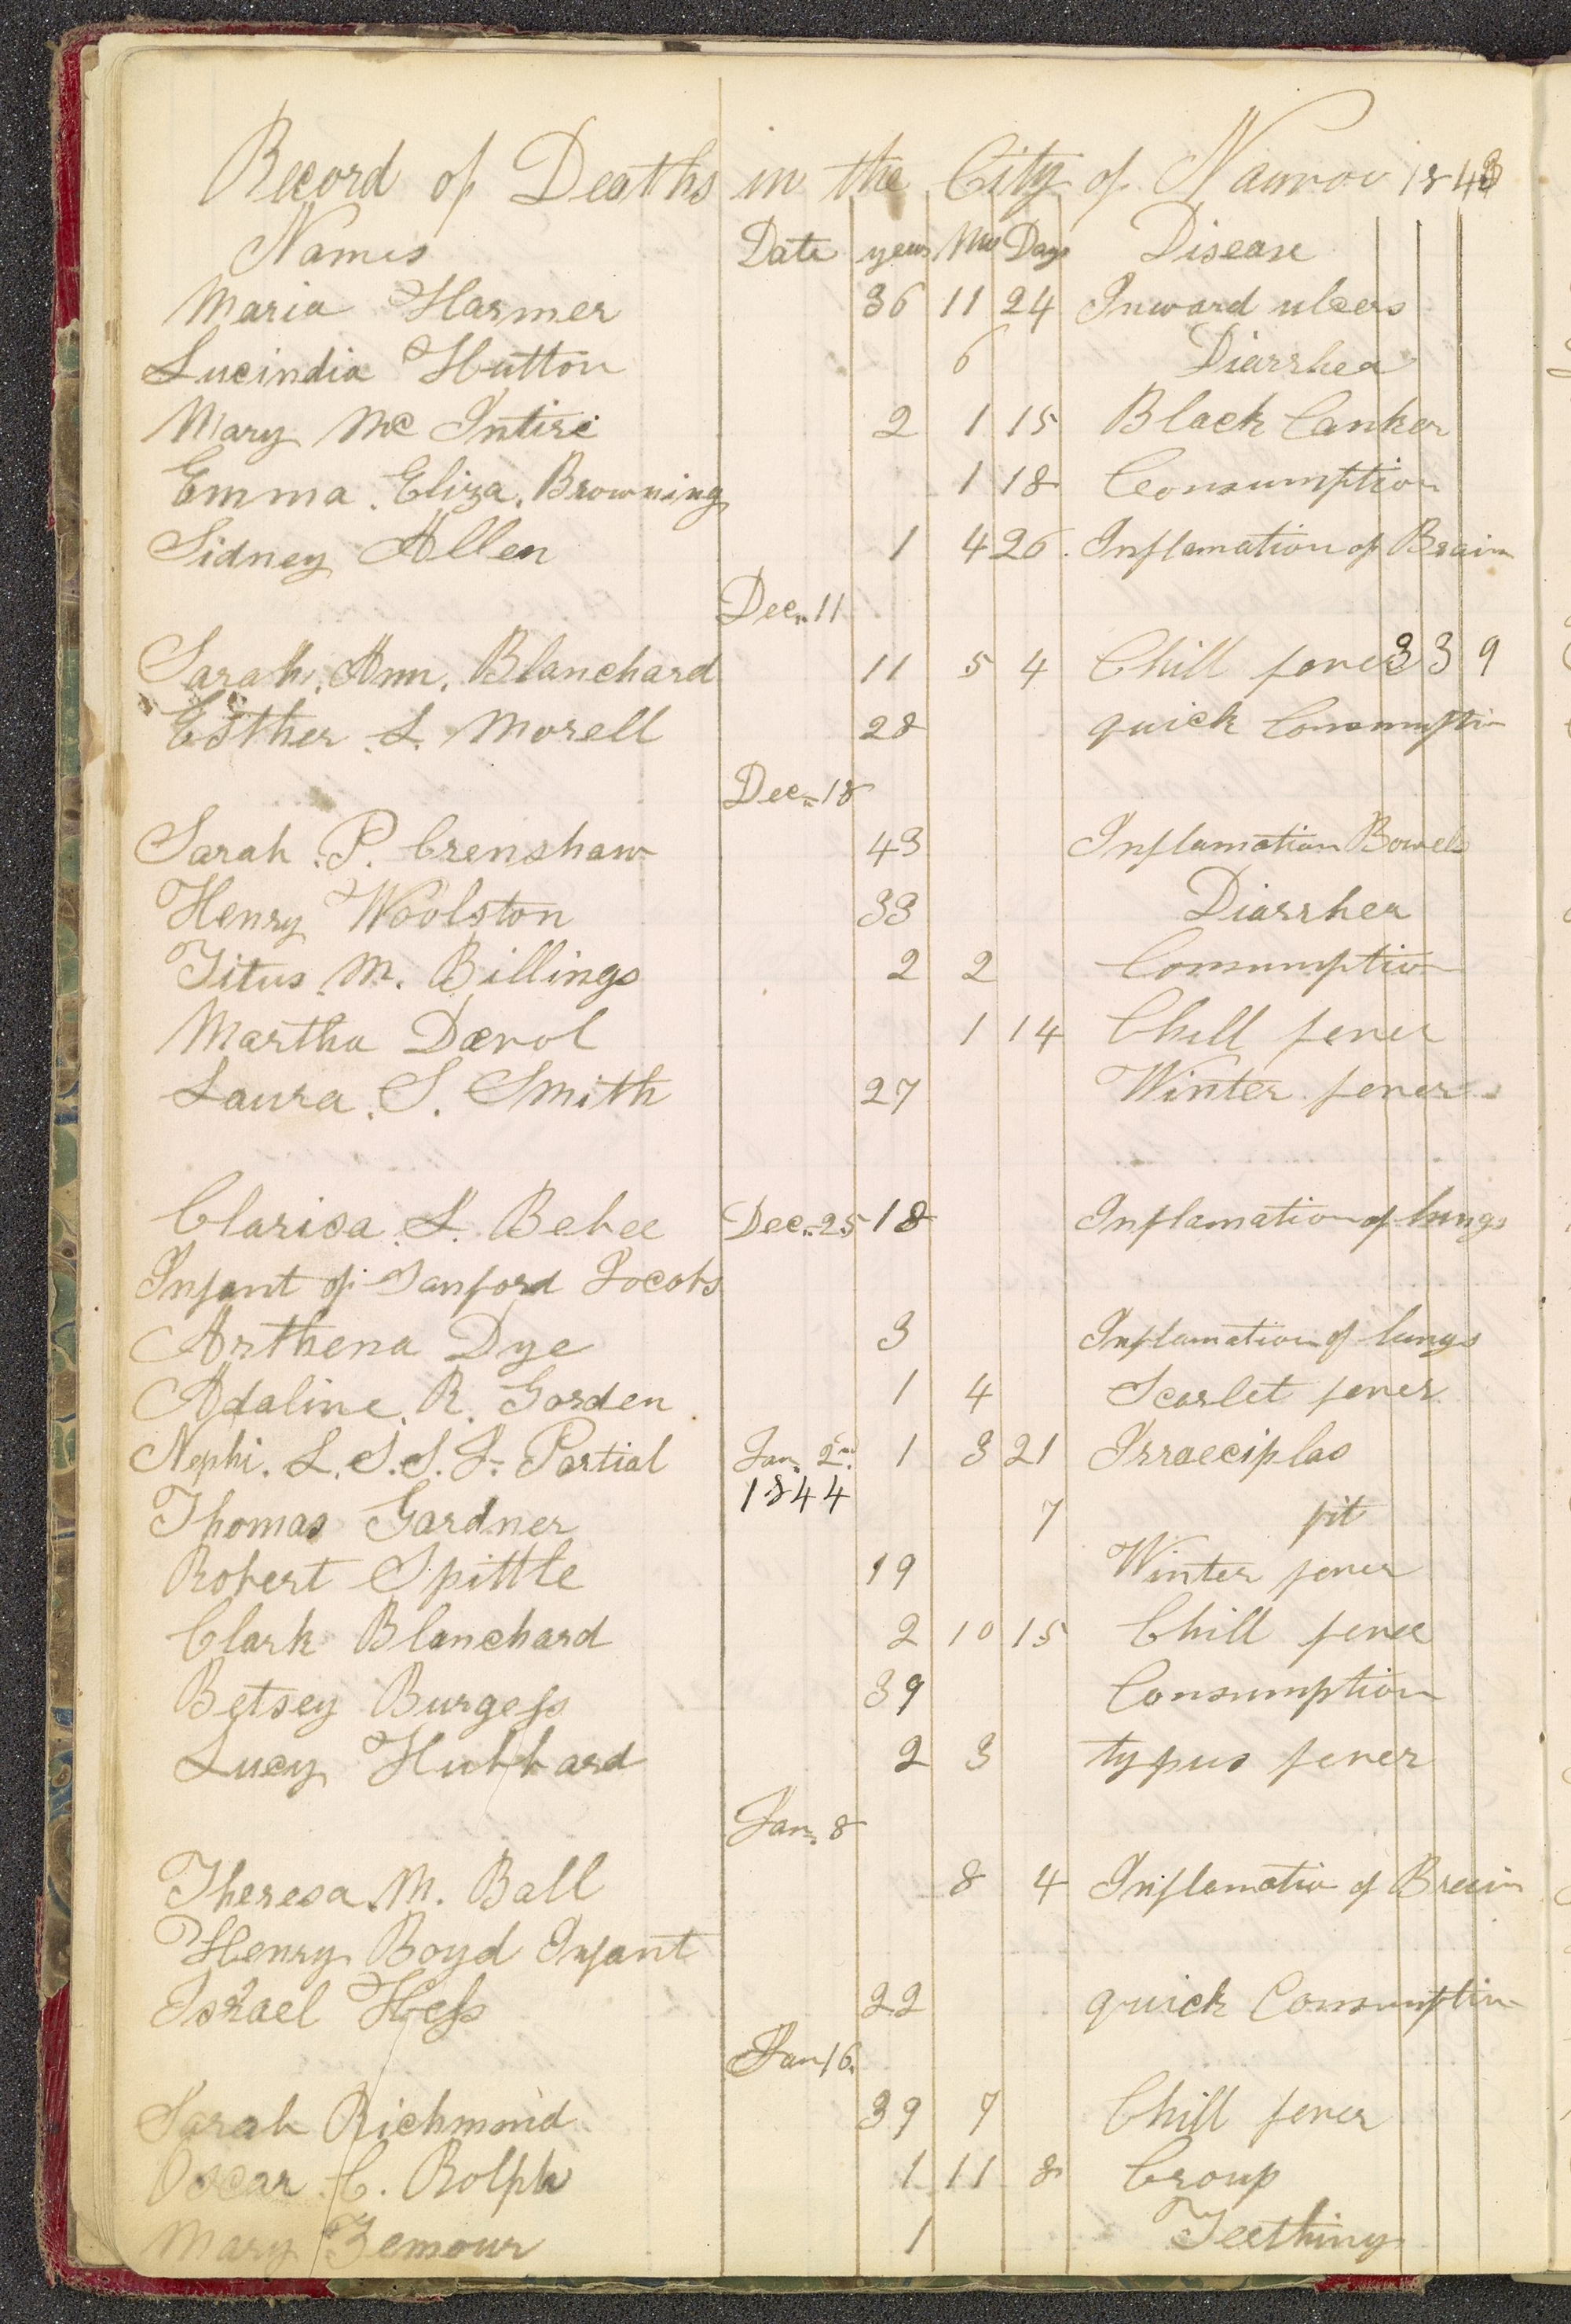 Record of Deaths in the City of Nauvoo 1843
Names Date years Mos Days Disease
Maria Harmer 36 11 24 Inward ulcers
Lucindia Hutton 6 Diarrhea
Mary Mc Intire 2 1 15 Black Canker
Emma. Eliza. Browning 1 18 Consumption
Sidney Allen 1 4 26. Inflamation of Brain
Dec. 11
Sarah. Ann. Blanchard 11 5 4 Chill fever 3 3 9
Esther. L. Morell 28 quick Consumption
Dec. 18
Sarah. P. Crenshaw 43 Inflamation Bowels
Henry Woolston 33 Diarrhea
Titus. M. Billings 2 2 Consumption
Martha 1 14 Chill fever
Laura. S. Smith 27 Winter fever
Clarisa. L. Bebee Dec. 25 18 Inflamation of lungs
Infant of Sanford Jocobs
Arthena Dye 3 Inflamation of lungs
Adaline. R. Gorden 1 4 Scarlet fever
Nephi. L. S. S. F. Partial Jan. 2nd 1 3 21 Irraeciplas
1844
Thomas Gardner 7 fit
Robert Spittle 19 Winter fever
Clark Blanchard 2 10 15 Chill fever
Betsey Burgess 39 Consumption
Lucy Hubbard 2 3 typus fever
Jan. 8
Theresa. M. Ball 8 4 Inflamation of Brain
Henry Boyd Infant
Israel Hess 22 quick Consumption
Jan 16.
Sarah Richmond 39 7 Chill fever
Oscar. C. Rolph 1 11 8 Croup
Mary Zemour 1 Teething